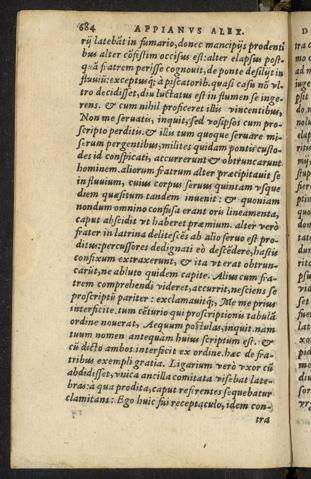 684 APPIANVS ALEX.
rij latebãt in fumario, donec mancipijs prodenti
bus alter cõfestim occisus est: alter elapsus post-
quã fratrem perisse cognouit, de ponte desilijt in
fluuiũ: exceptusq́; à piscatorib. quasi casu nõ vl-
tro decidisset, diu luctatus est in flumen se inge-
rens. & cum nihil proficeret illis vincentibus,
Non me seruatis, inquit, sed vosipsos cum pro-
scripto perditis. & illis tum quoque seruare mi-
serum pergentibus, milites quidam pontis custo-
des id conspicati, accurrerunt & obtruncarunt
hominem. aliorum fratrum alter præcipitauit se
in fluuium, cuius corpus seruus quintam vsque
diem quæsitum tandem inuenit: & quoniam
nondum omnino confusa erant oris lineamenta,
caput abscidit vt haberet præmium. alter verò
frater in latrina delitescẽs ab alio seruo est pro-
ditus: percussores dedignati eò descẽdere, hastis
confixum extraxerunt, & ita vt erat obtrun-
carũt, ne abluto quidem capite. Alius cum fra-
trem comprehendi videret, accurrit, nesciens se
proscriptũ pariter: exclamauitq́;, Me me prius
interficite. tum cẽturio qui proscriptionũ tabulã
ordine nouerat, Aequum postulas, inquit. nam
tuum nomen antequam huius scriptum est. &
cũ dicto ambos interficit ex ordine. hæc de fra-
tribus exempli gratia. Ligarium verò vxor cũ
abdidisset, vnica ancilla comitata visebat late-
bras: à qua prodita, caput referentes sequebatur
clamitans: Ego huic fui receptaculo, idem con-
tra